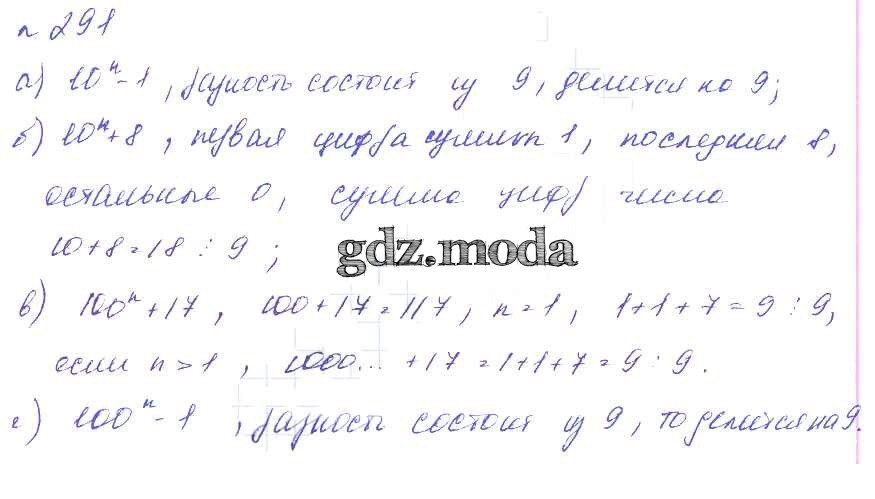 № 291
а) 10ⁿ - 1, разность состоит из 9, делится на 9;
б) 10ⁿ + 8, первая цифра суммы 1, последняя 8,
остальные 0, сумма цифр числа
10 + 8 = 18 ⋮ 9;
gdz.moda
в) 100ⁿ + 17, 100 + 17 = 117, n = 1, 1 + 1 + 7 = 9 ⋮ 9,
если n > 1, 1000... + 17 = 1 + 1 + 7 = 9 ⋮ 9.
г) 100ⁿ - 1, разность состоит из 9, то делится на 9.